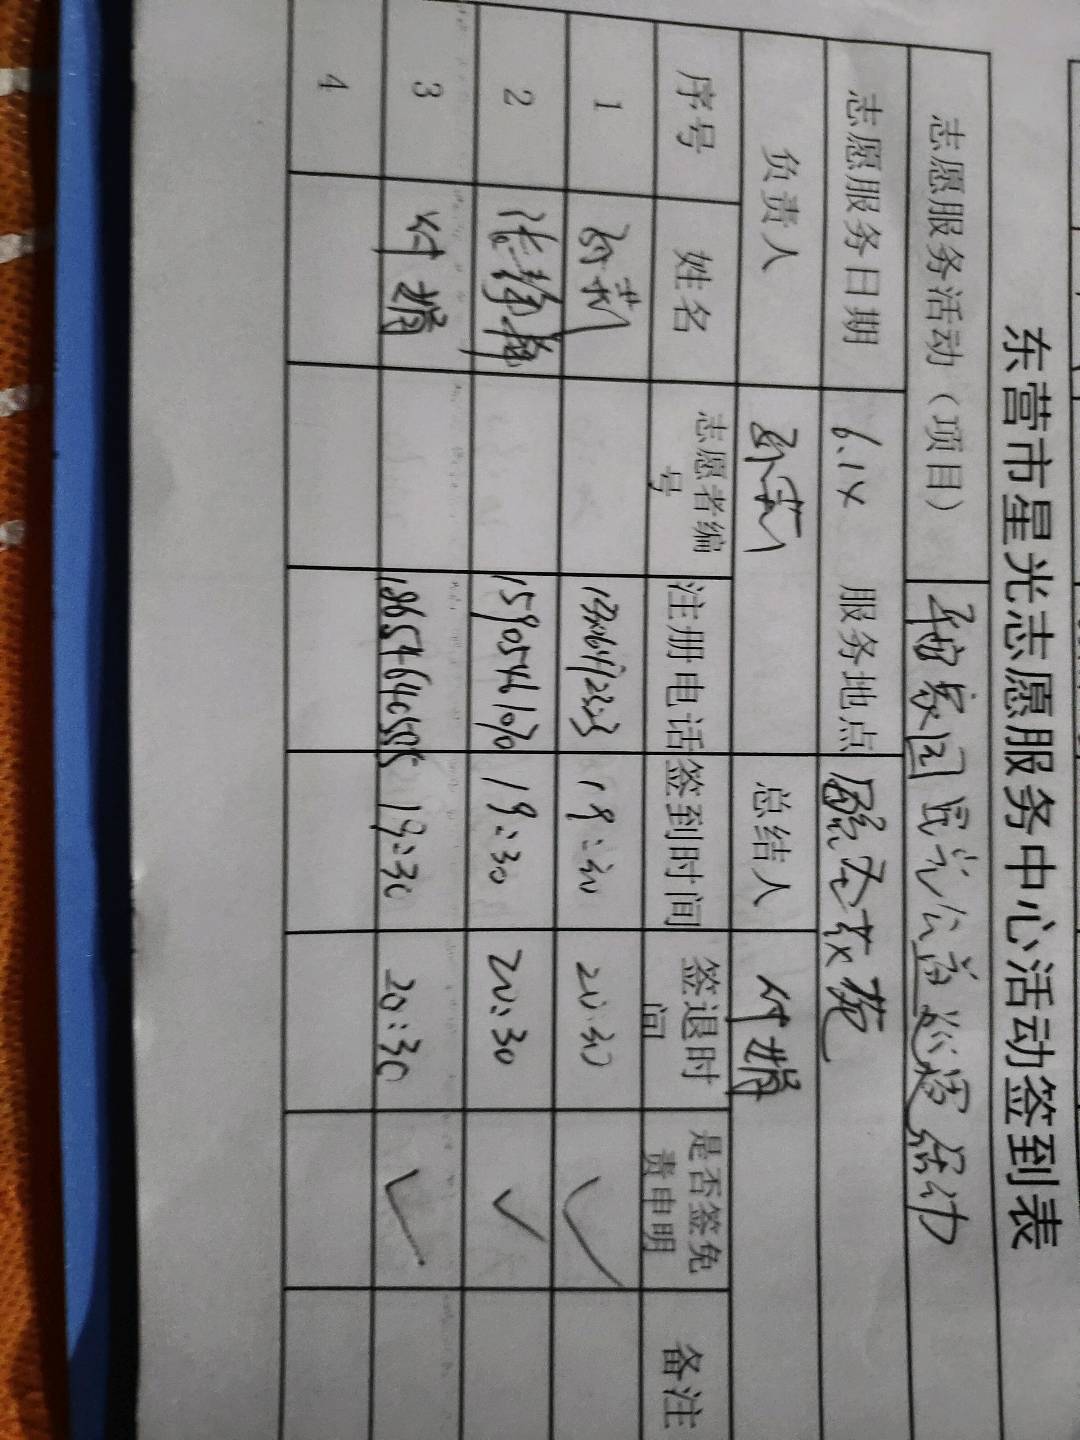 东营市星光志愿服务中心活动签到表
志愿服务活动（项目） 平安家园星光公益巡逻活动
志愿服务日期 6.14 服务地点
负责人 孙莉 总结人 付娟
序号 姓名 志愿者编号 注册电话 签到时间 签退时间 是否签免责申明 备注
1 孙莉 19:30 20:30 ✓
2 19:30 20:30 ✓
3 付娟 18654640505 19:30 20:30 ✓
4